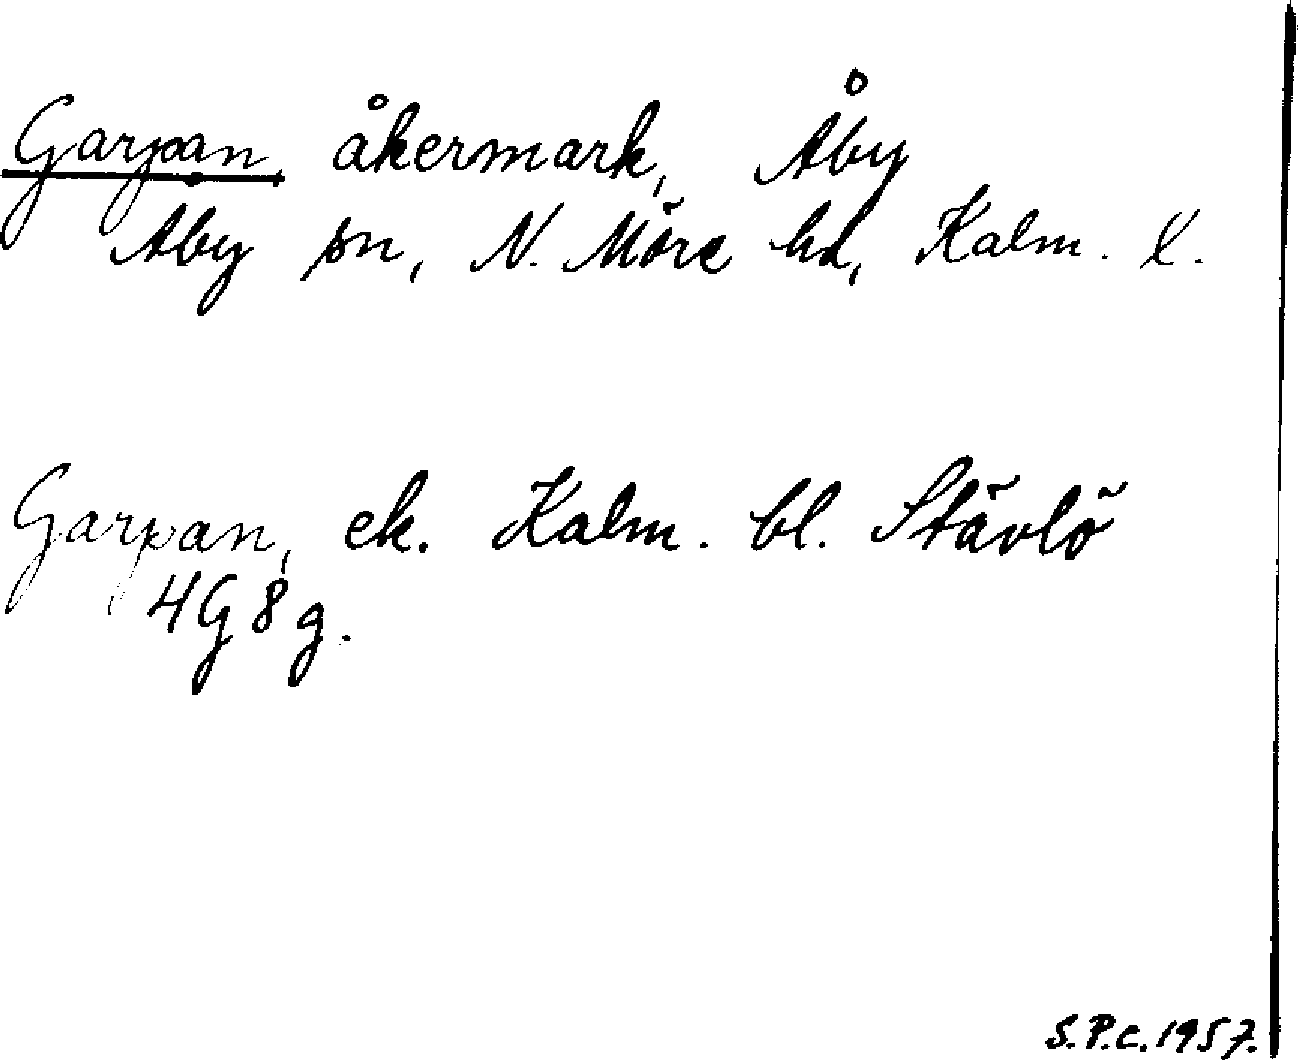 Garpan, åkermark, Åby
Åby sn, N. Möre hd, Kalm. l.
Garpan, ek. Kalm. bl. Stävlö
4G8g.
S.P.C. 1957.